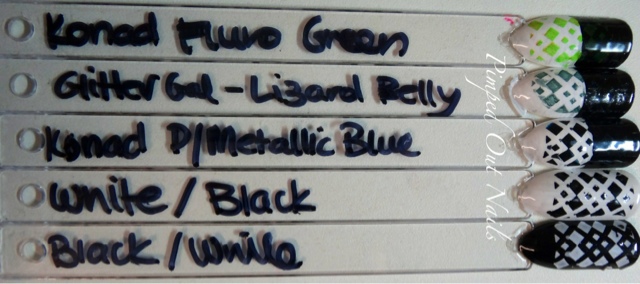 Konad Fluro Green
Glitter Gal - Lizard Belly
Konad D/Metallic Blue
White / Black
Black / White
Pimped Out Nails